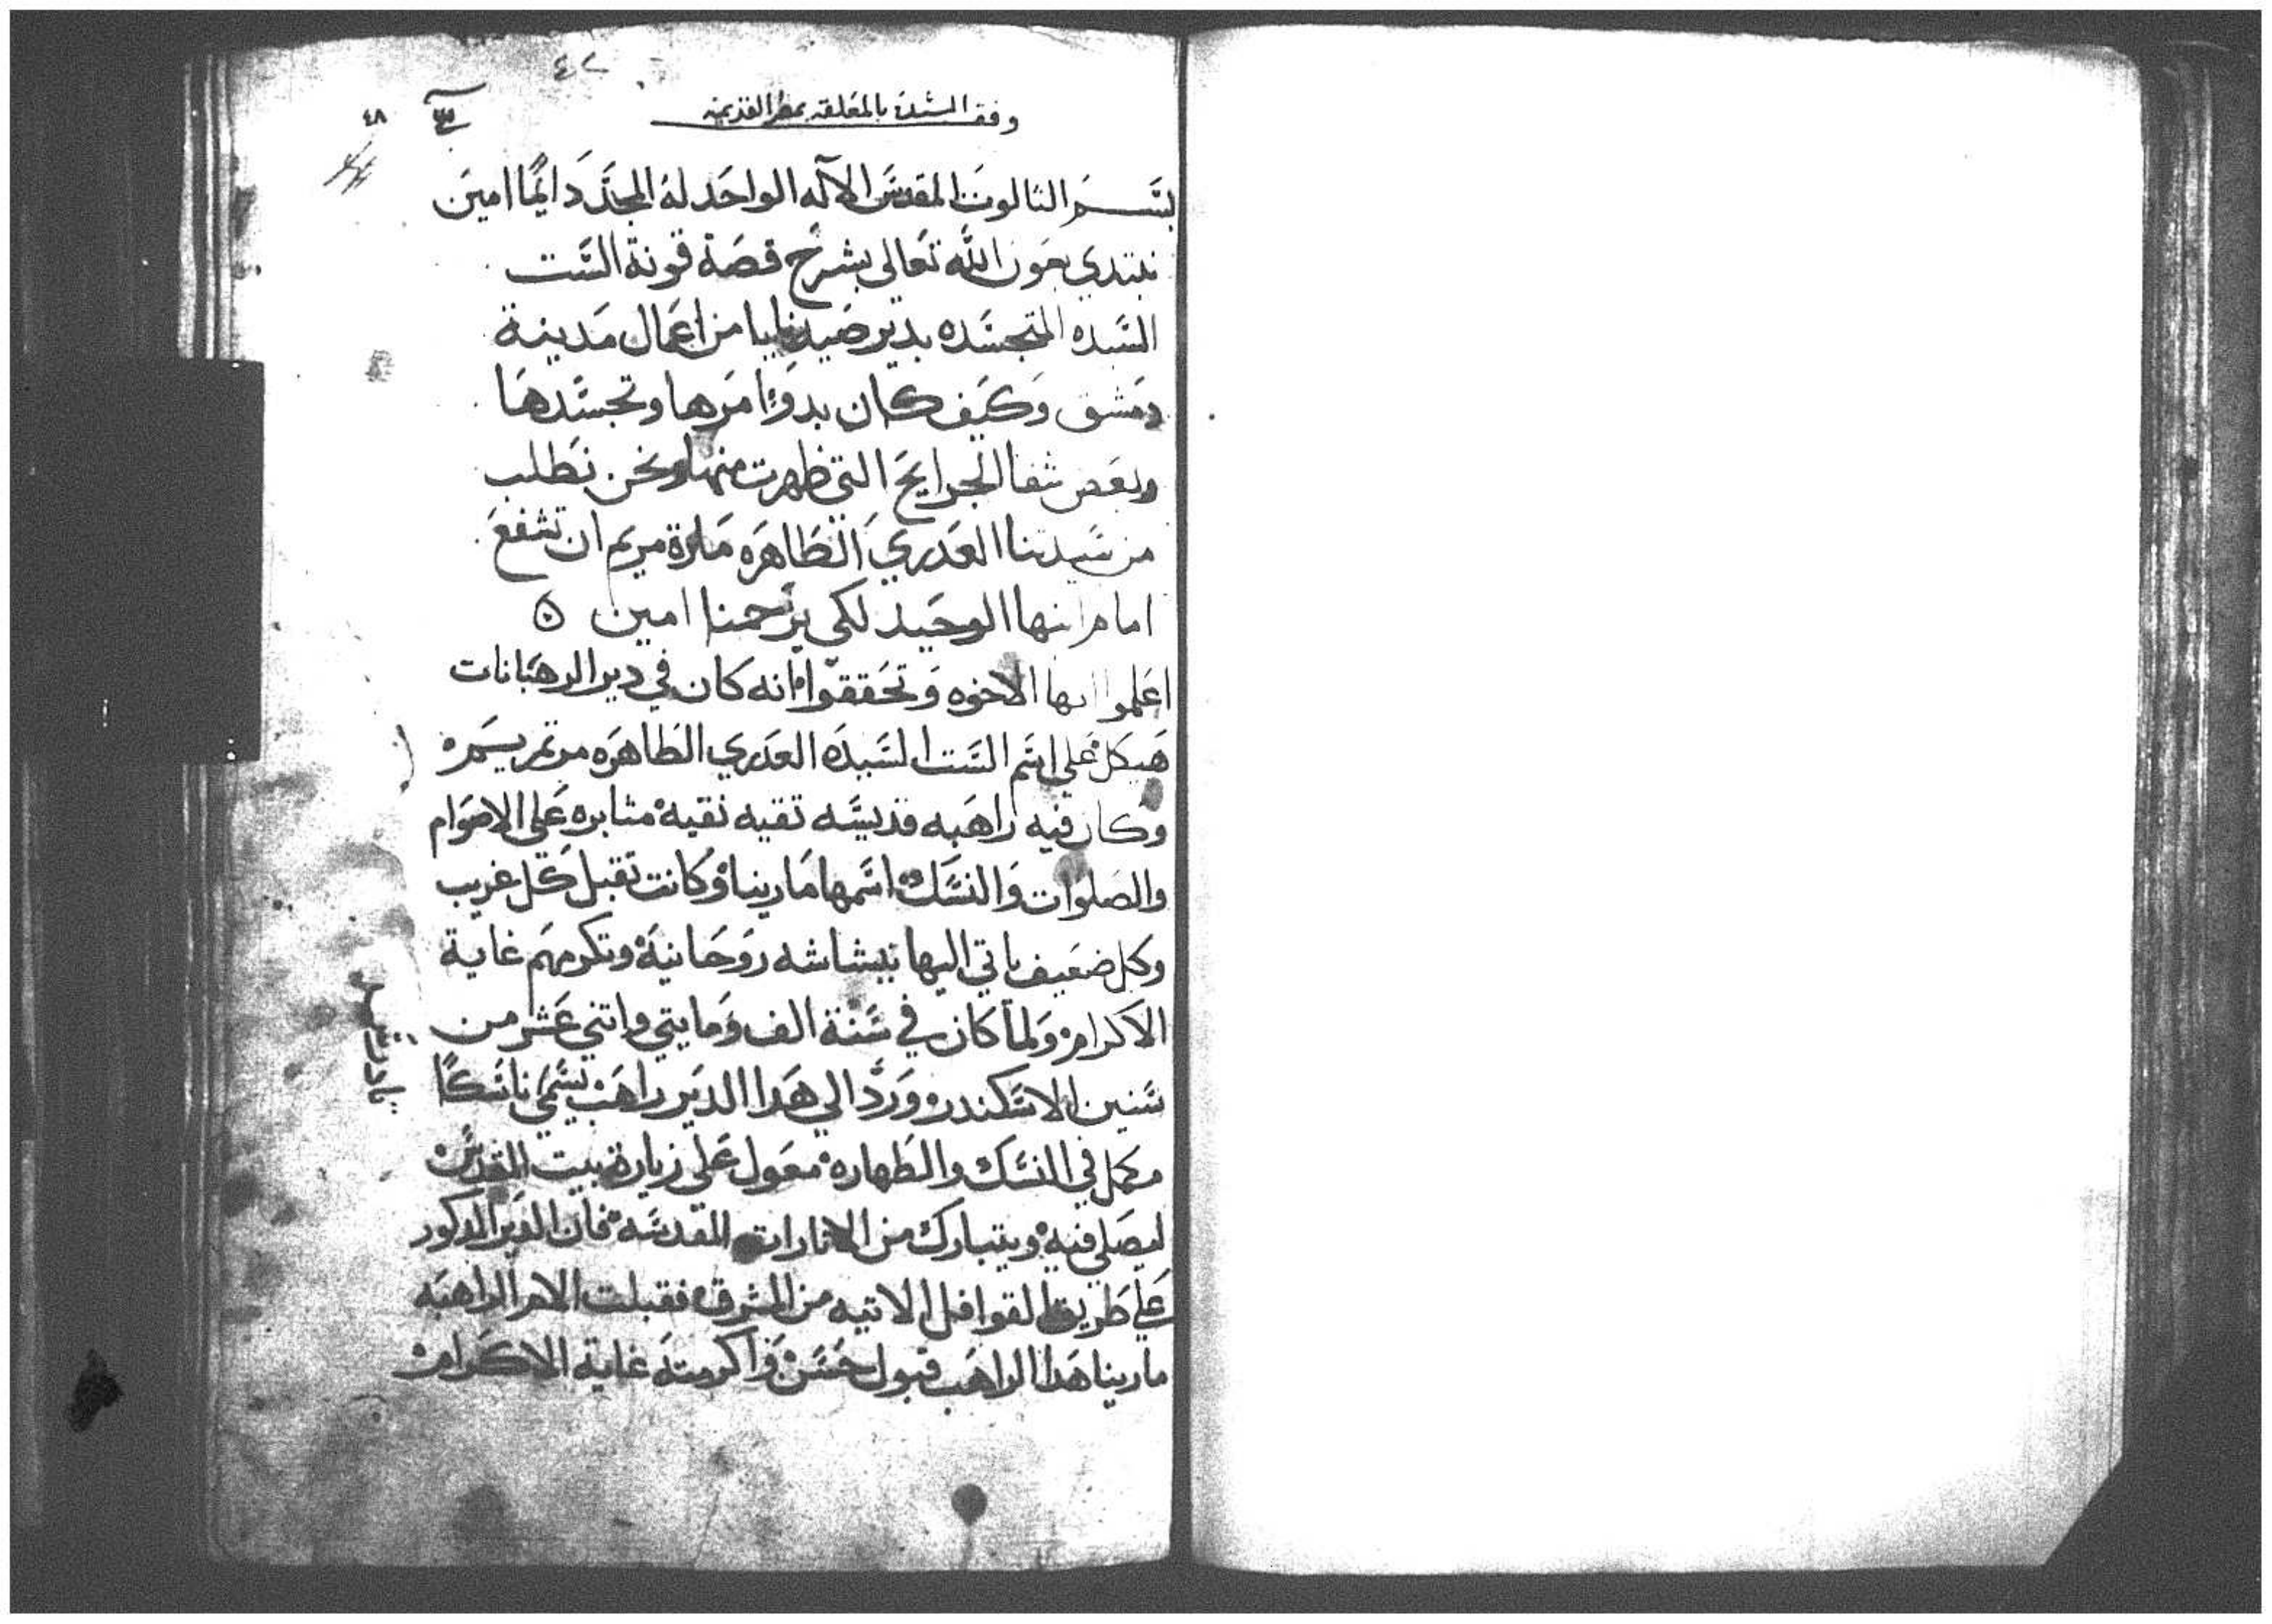 ٤٢
وقف السيده بالمعلقه بمصر القديمه
٤٨
بسم الثالوث المقدس الاله الواحد له المجد دَايمًا امين
نبتدي بعون الله تعالى بشرح قصة قونة الست
السيده المتجسده بدير صيدنايا من اعمال مدينة
دمشق وكيف كان بدوّ امرها وتجسدها
وبعض شفا الجرايح التي ظهرت منها ونحن نطلب
من سيدتنا العدري الطاهره مارة مريم ان تشفع
امام ابنها الوحيد لكي يرحمنا امين
اعلموا ايها الاخوه وتحققوا انه كان في دير الرهبانات
هيكل على اسم الست السيده العدري الطاهره مرتمريم
وكان فيه راهبه قديسه تقيه نقيه مثابره علي الاصوام
والصلوات والنسك اسمها مارينا وكانت تقبل كل غريب
وكل ضعيف ياتي اليها ببشاشه روحانية وتكرمهم غاية
الاكرام ولما كان في سنة الف ومايتي واتني عشر من
سنين الاسكندر ورد الي هدا الدير راهب يسمي ناسكًا
مكمل في النسك والطهاره معول علي زيارة بيت المقدس
ليصلي فيه ويتبارك من الاتارات المقدسه فان الدير المدكور
علي طريق القوافل الاتيه من المشرق فقبلت الام الراهبه
مارينا هدا الراهب قبول حسن واكرمته غاية الاكرام